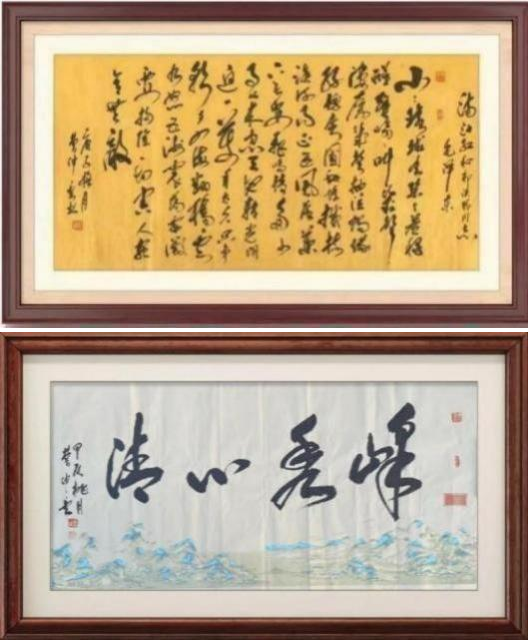 满江红和郭沫若同志
毛泽东
小小寰球有几个苍蝇碰
壁嗡嗡叫几声
凄厉几声抽泣蚂蚁
缘槐夸大国蚍蜉撼树
谈何易正西风落叶
下长安飞鸣镝多少
事从来急天地转光阴
迫一万年太久只争朝
夕四海翻腾云
水怒五洲震荡风雷激
要扫除一切害人虫
全无敌
峰秀心清
甲辰桃月